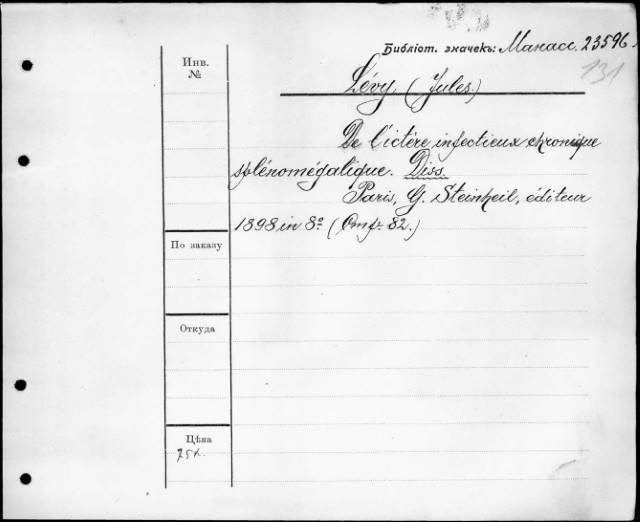 Библіот. значекъ: Манасс. 23596.
131
Инв.
№
Lévy, (Jules.)
De l'ictère infectieux chronique
splénomégalique. Diss.
Paris, G. Steinheil, éditeur
1898 in 8º (стр. 82.)
По заказу
Откуда
Цѣна
75к.